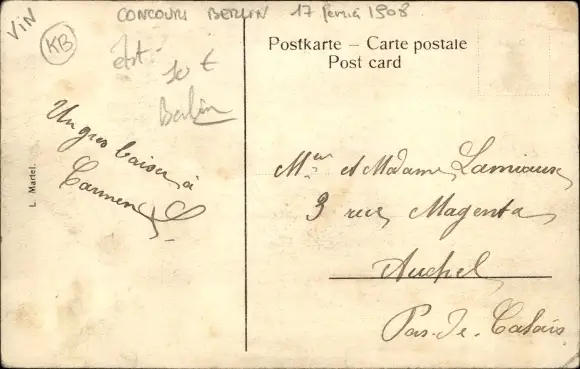 CONCOURS BERLIN 17 février 1908
VIN
KB
état
10 €
Berlin
Postkarte – Carte postale
Post card
Un gros baiser à
Carmen
L. Martel.
Mr et Madame Lamiaux
3 rue Magenta
Auchel
Pas-de-Calais